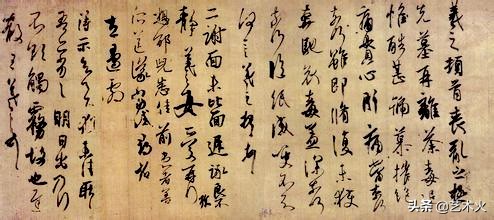 羲之頓首喪亂之極
先墓再離荼毒追
惟酷甚號慕摧絕
痛貫心肝痛當奈何
奈何雖即脩復未獲
奔馳哀毒益深奈何
奈何臨紙感哽不知
何言羲之頓首頓首
二謝面未比面遲詠良不
靜羲之女愛再拜
想邰兒悉佳前患者善
所送議當試尋省
左邊劇
得示知足下猶未佳耿耿
吾亦劣劣明日出乃行
不欲觸霧故也遲
散王羲之頓首
头条 @艺术火